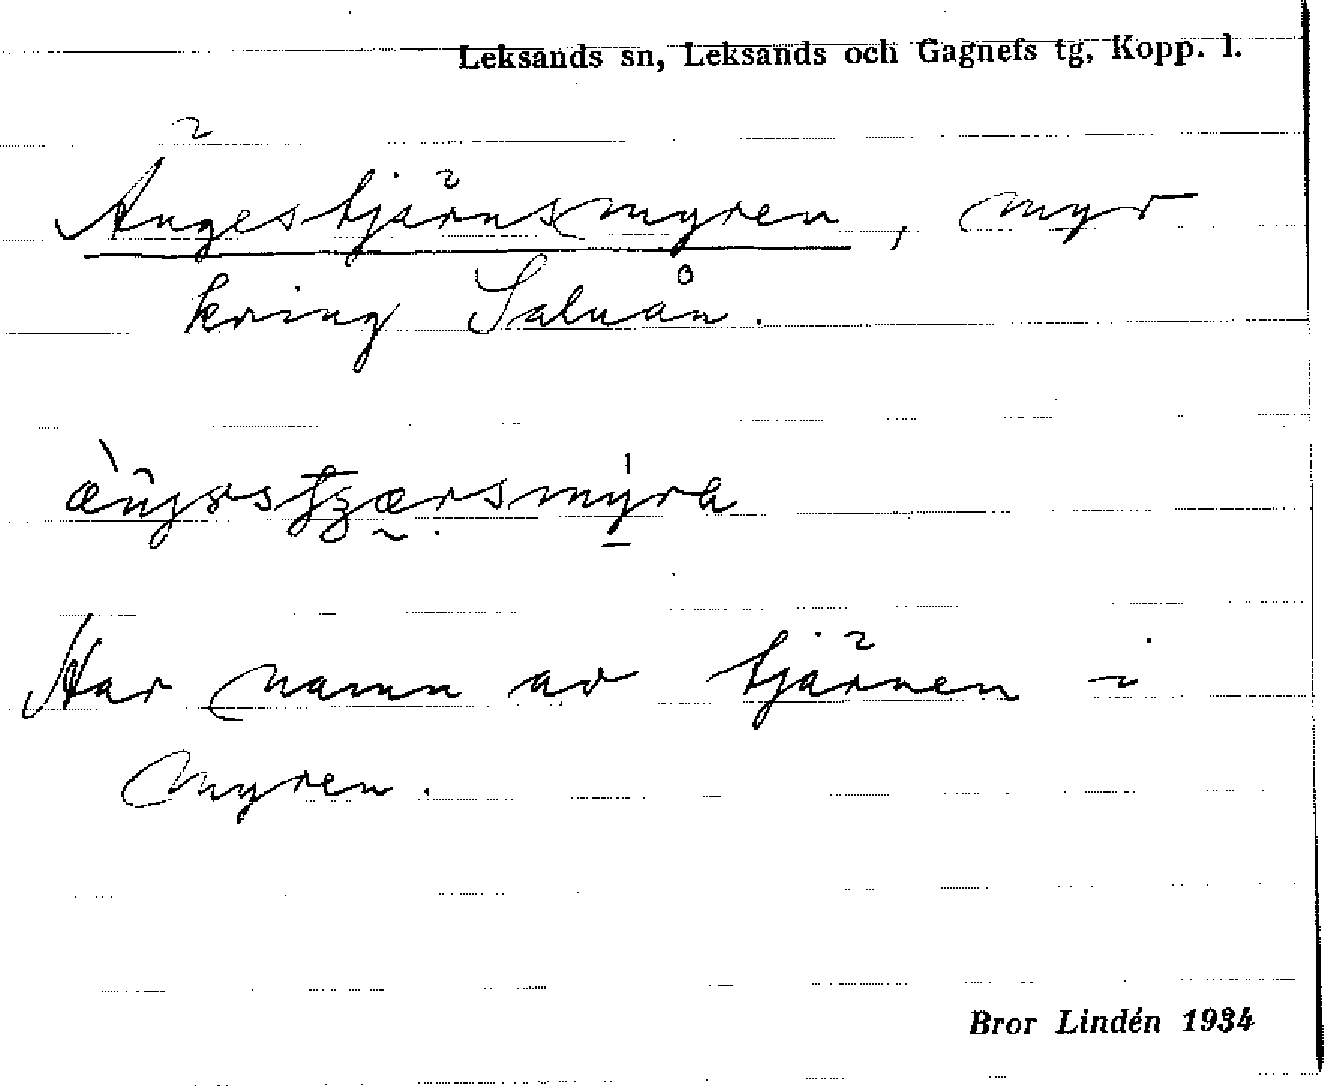 Leksands sn, Leksands och Gagnefs tg, Kopp. l.
Ängestjärnsmyren, myr
kring Saluån.
Har namn av tjärnen i
myren.
Bror Lindén 1934